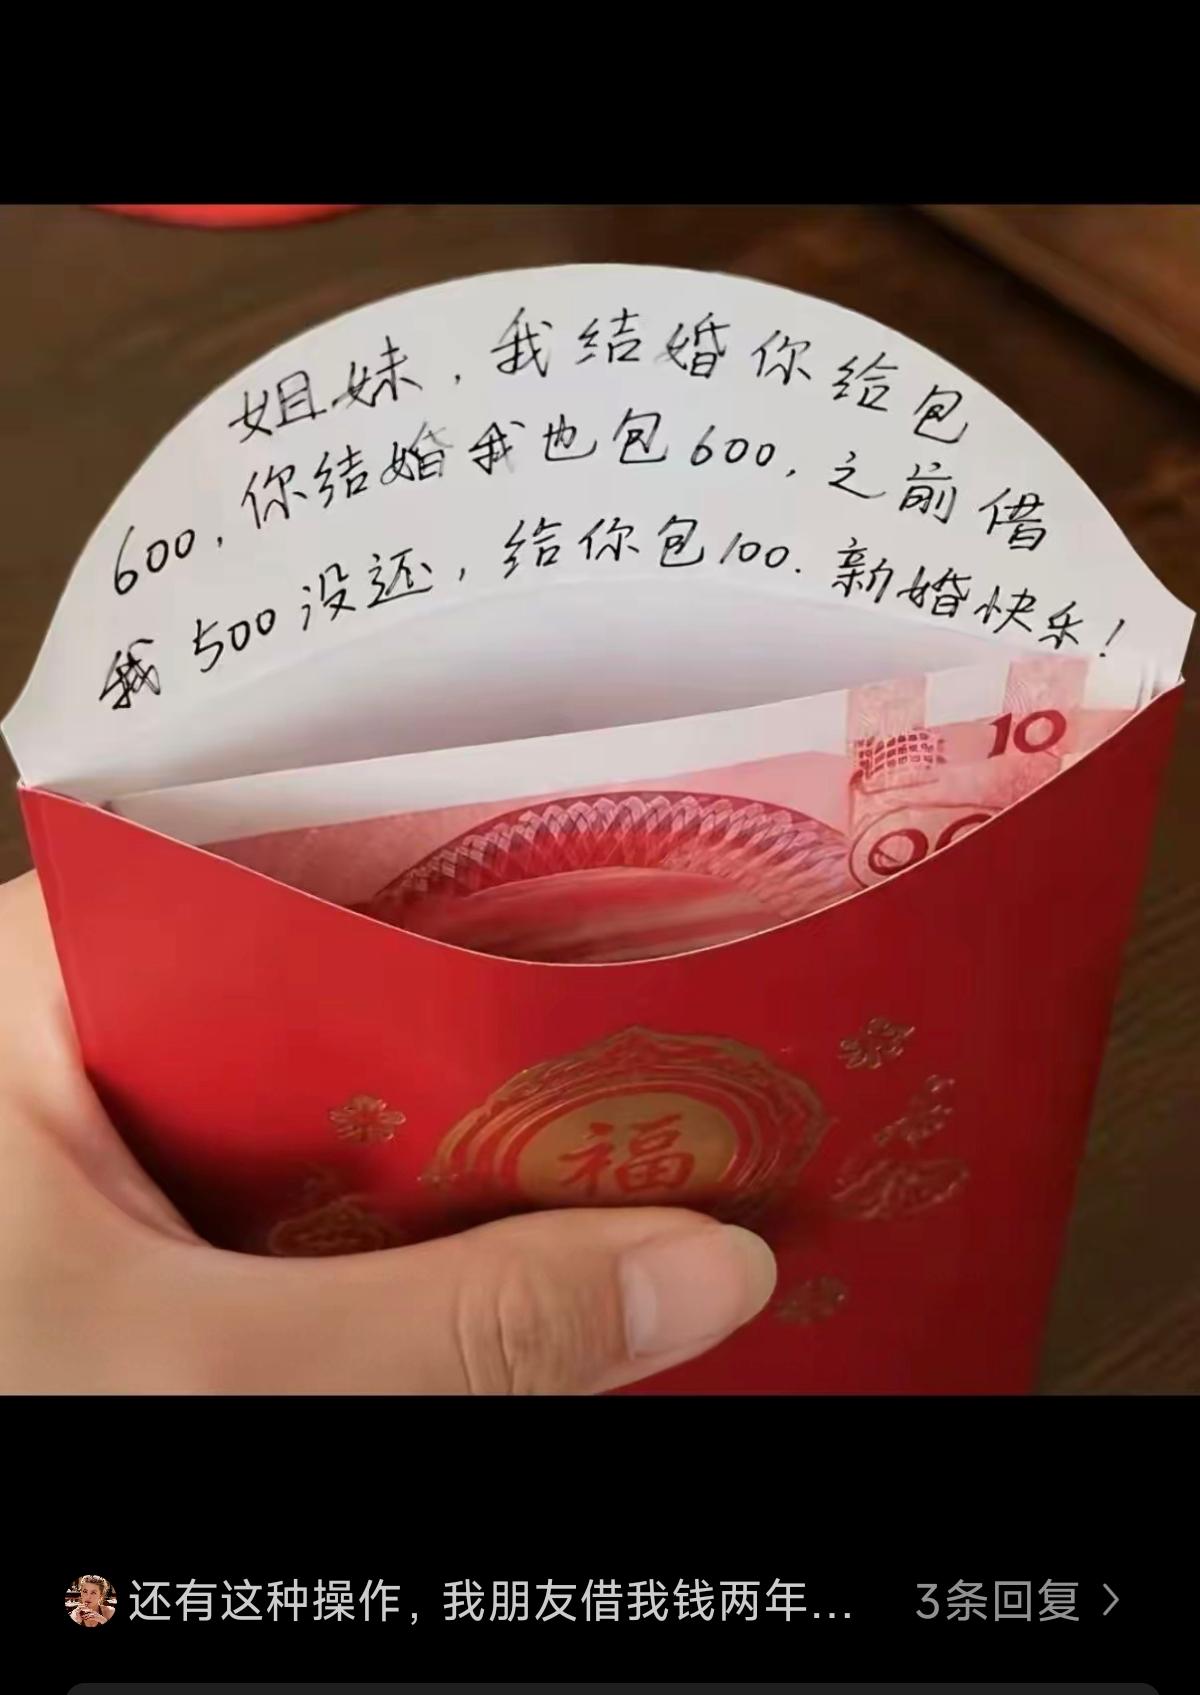 姐妹，我结婚你给包
600，你结婚我也包600，之前借
我500没还，给你包100.新婚快乐！
10
福
还有这种操作，我朋友借我钱两年...
3条回复